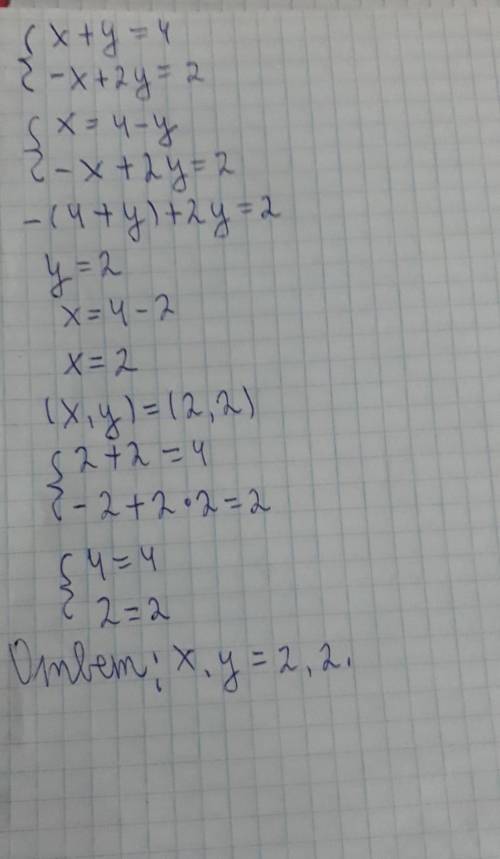 { x + y = 4
{ -x + 2y = 2
{ x = 4 - y
{ -x + 2y = 2
-(4 + y) + 2y = 2
y = 2
x = 4 - 2
x = 2
(x, y) = (2, 2)
{ 2 + 2 = 4
{ -2 + 2 · 2 = 2
{ 4 = 4
{ 2 = 2
Ответ: x, y = 2, 2.